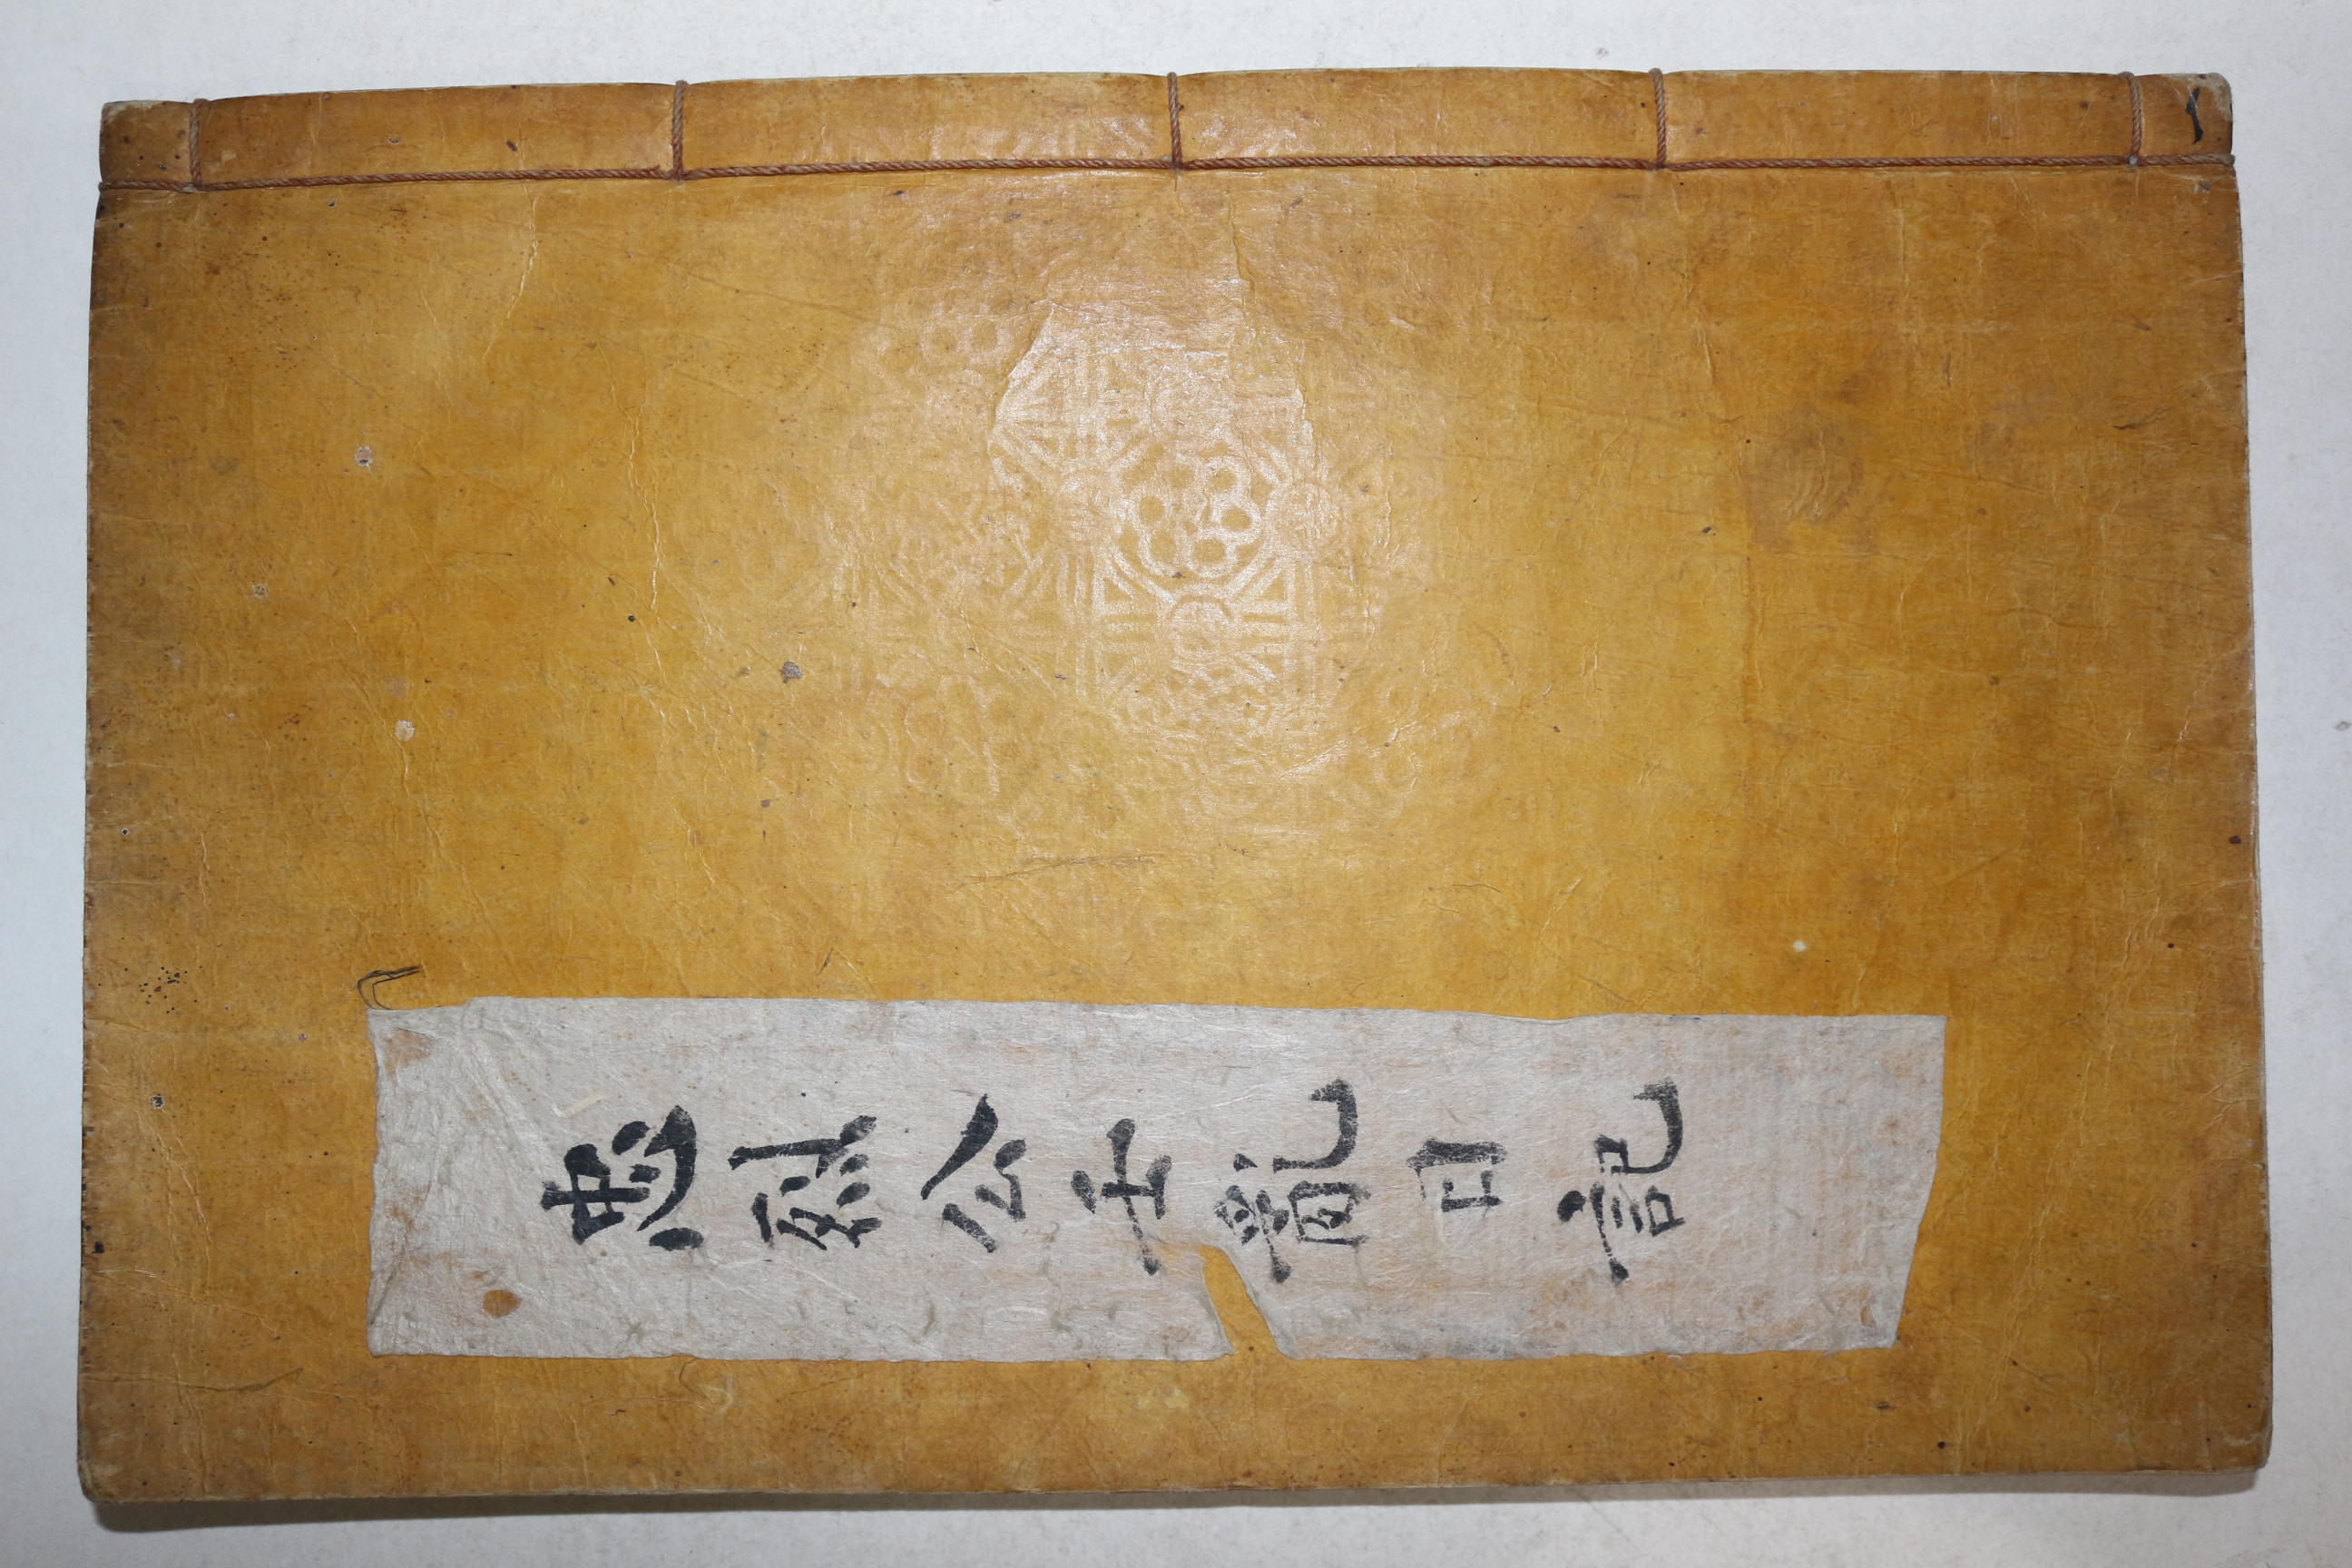 忠烈公壬龍日記